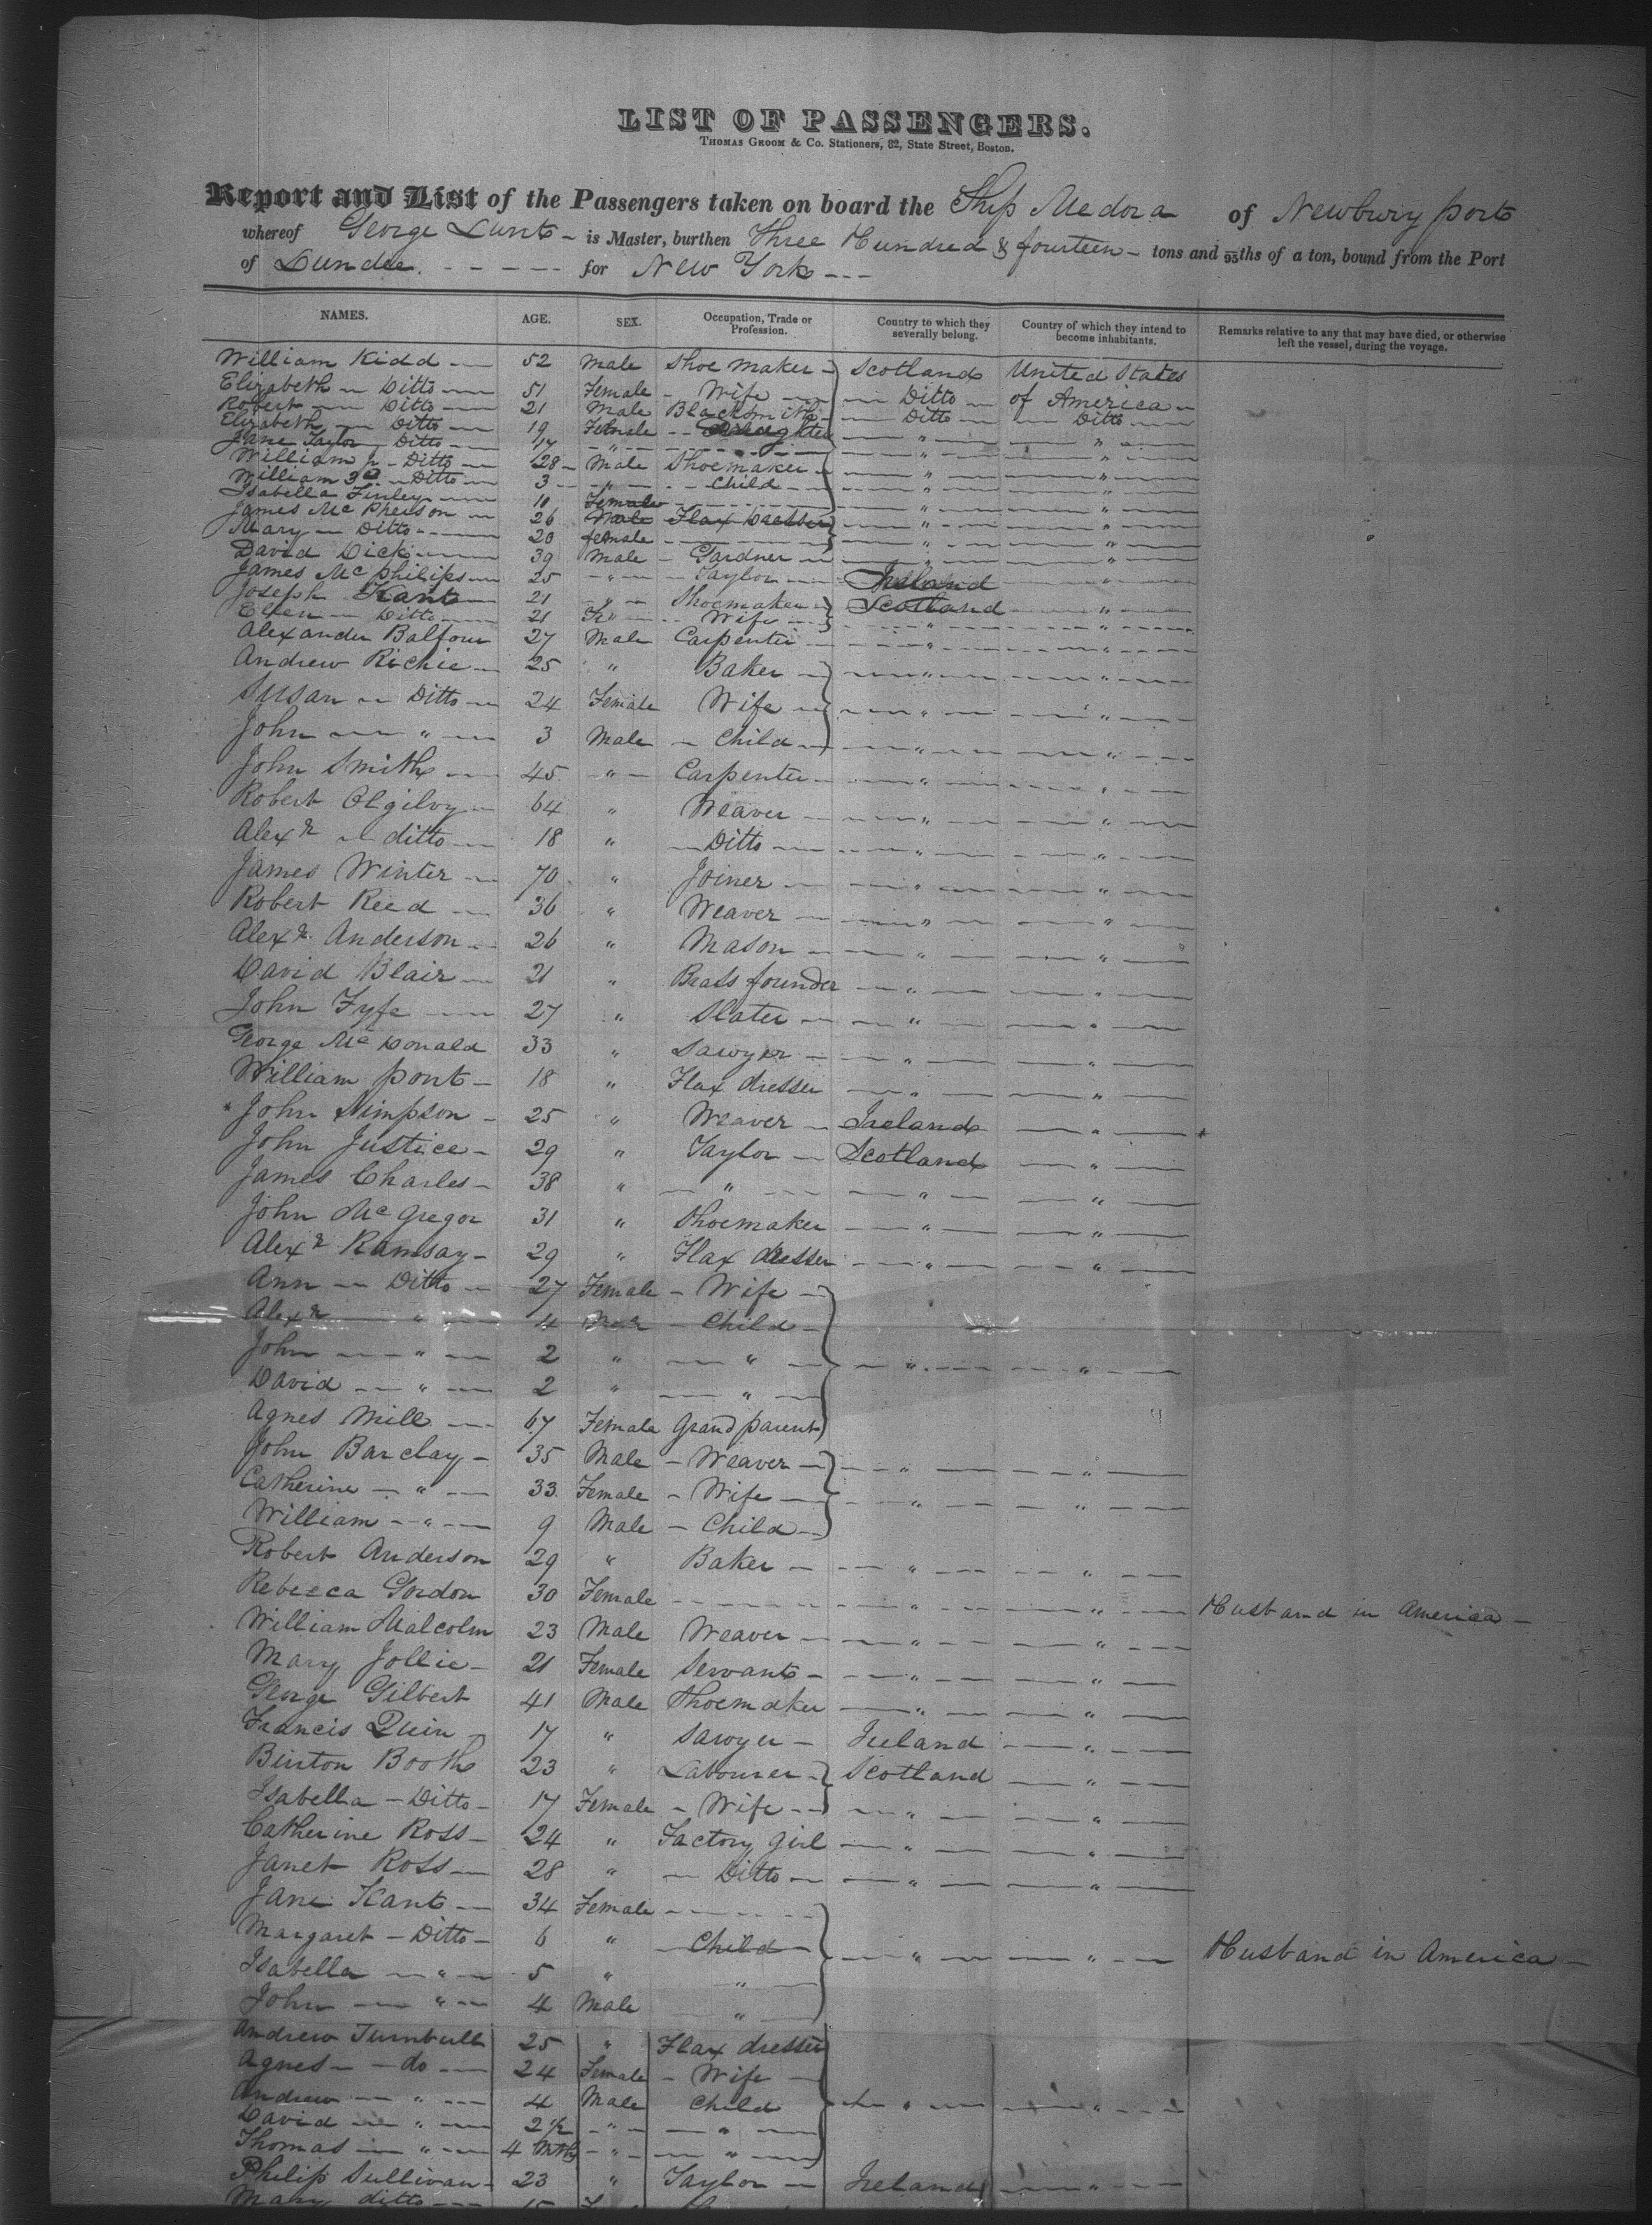 LIST OF PASSENGERS.
THOMAS GROOM & Co. Stationers, 82, State Street, Boston.
Report and List of the Passengers taken on board the Ship Medora of Newbury port
whereof George Lunt - is Master, burthen Three Hundred & fourteen - tons and 95ths of a ton, bound from the Port
of Dundee. - - - - - for New York - - -
NAMES. AGE. SEX. Occupation, Trade or Profession. Country to which they severally belong. Country of which they intend to become inhabitants. Remarks relative to any that may have died, or otherwise left the vessel, during the voyage.
William Kidd 52 Male Shoe maker Scotland United States
Elizabeth Ditto 51 Female Wife Ditto of America
Robert Ditto 21 Male Blacksmith Ditto Ditto
Elizabeth Ditto 19 Female Daughter " "
Jane Taylor Ditto 17 " " "
William Jr Ditto 28 Male Shoemaker " "
William 3d Ditto 3 " Child " "
Isabella Finley 10 Female " "
James McPherson 26 Male Flax Dresser " "
Mary Ditto 20 female " "
David Dick 39 Male Gardner " "
James McPhilips 25 " Taylor Ireland "
Joseph Kant 21 " Shoemaker Scotland "
Ellen Ditto 21 Fe Wife " "
Alexander Balfour 27 Male Carpenter " "
Andrew Richie 25 " Baker " "
Susan Ditto 24 Female Wife " "
John " 3 Male Child " "
John Smith 45 " Carpenter " "
Robert Olgilvy 64 " Weaver " "
Alexr ditto 18 " Ditto " "
James Winter 70 " Joiner " "
Robert Reed 36 " Weaver " "
Alexr Anderson 26 " Mason " "
David Blair 21 " Brass founder " "
John Fyfe 27 " Slater " "
George McDonald 33 " Sawyer " "
William Pont 18 " Flax dresser " "
* John Simpson 25 " Weaver Ireland "
John Justice 29 " Taylor Scotland "
James Charles 38 " " " "
John McGregor 31 " Shoemaker " "
Alexr Ramsay 29 " Flax dresser " "
Ann Ditto 27 Female Wife
Alexr " 4 Male Child
John " 2 " " " "
David " 2 " "
Agnes Mill 67 Female Grand parent
John Barclay 35 Male Weaver " "
Catherine " 33 Female Wife " "
William " 9 Male Child
Robert Anderson 29 " Baker " "
Rebecca Gordon 30 Female " " Husband in America
William Malcolm 23 Male Weaver " "
Mary Jollie 21 Female Servant " "
George Gilbert 41 Male Shoemaker " "
Francis Quin 17 " Sawyer Ireland "
Burton Booth 23 " Labourer Scotland "
Isabella Ditto 17 Female Wife " "
Catherine Ross 24 " Factory girl " "
Janet Ross 28 " Ditto " "
Jane Kant 34 Female
Margaret Ditto 6 " Child " " Husband in America
Isabella " 5 " "
John " 4 Male "
Andrew Turnbull 25 " Flax dresser
Agnes do 24 Female Wife
Andrew " 4 Male Child " "
David " 2 1/2 " "
Thomas " 4 Mths " "
Philip Sullivan 23 " Taylor Ireland "
Mary ditto 15